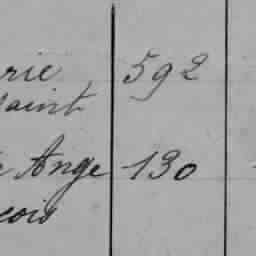 rie 592
Saint
Ange 130
cois